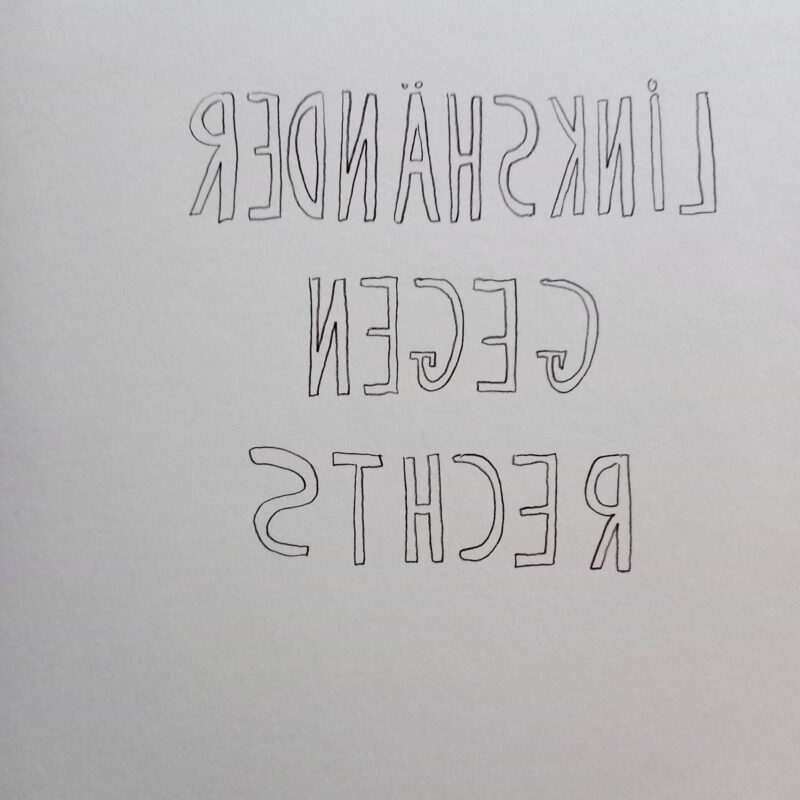 LiNKSHÄNDER
GEGEN
RECHTS